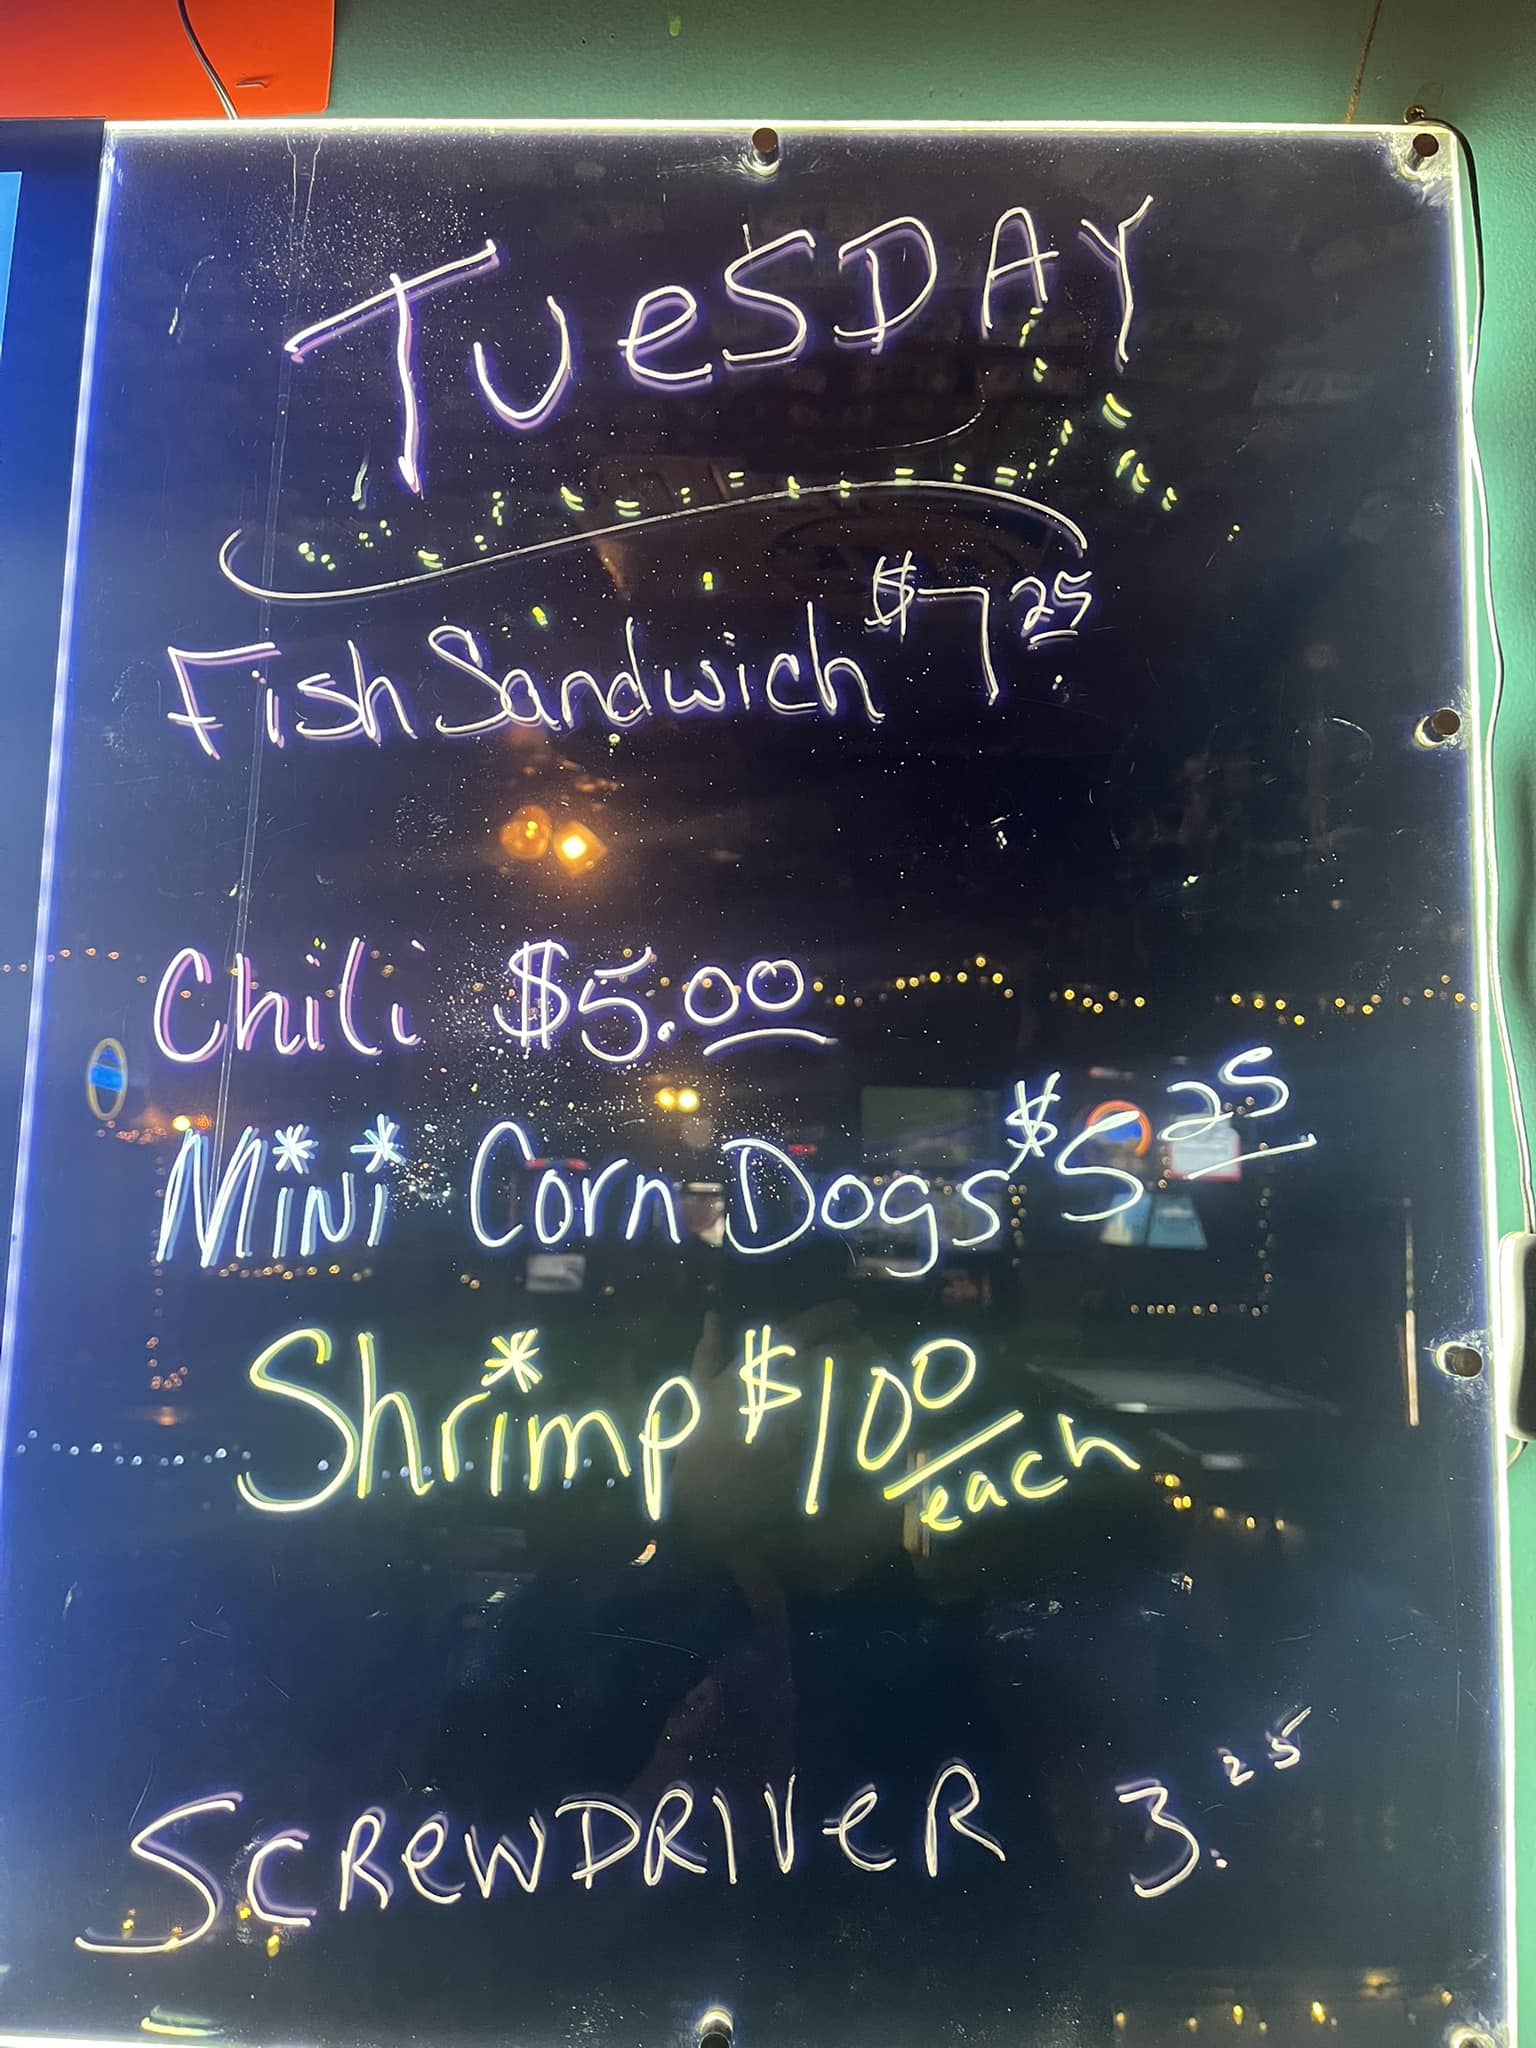 TUeSDAY
Fish Sandwich $7.25
Chili $5.00
MiNi Corn Dogs $5 25
Shrimp $1 00/each
SCReWDRIVeR 3.25